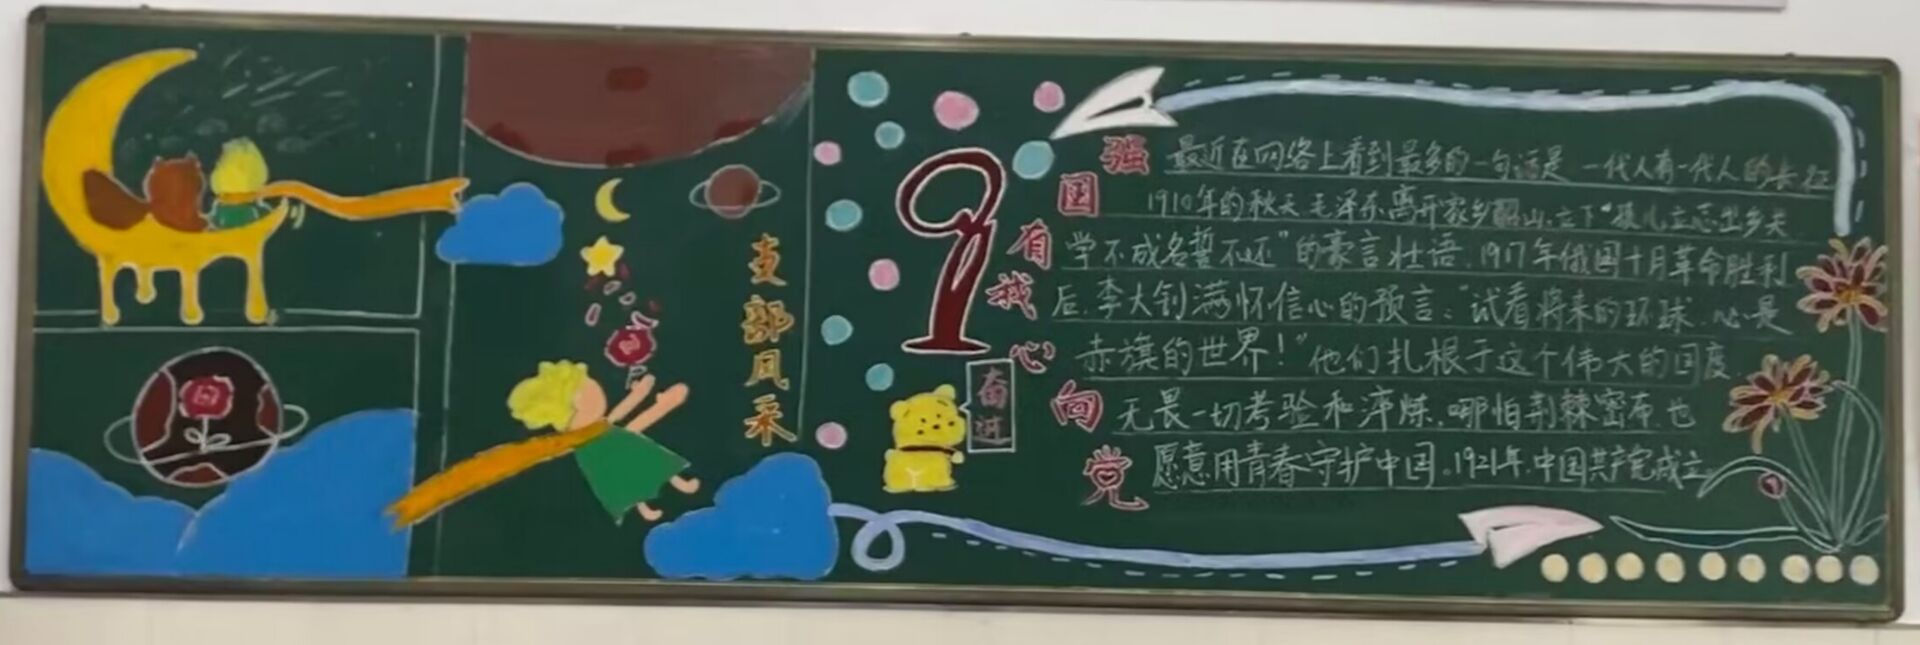 支部风采
奋进
强国有我心向党
最近在网络上看到最多的一句话是 一代人有一代人的长征
1910年的秋天毛泽东离开家乡韶山,立下“孩儿立志出乡关
学不成名誓不还”的豪言壮语.1917年俄国十月革命胜利
后,李大钊满怀信心的预言:“试看将来的环球,必是
赤旗的世界!”他们扎根于这个伟大的国度
无畏一切考验和淬炼,哪怕荆棘密布,也
愿意用青春守护中国。1921年,中国共产党成立。